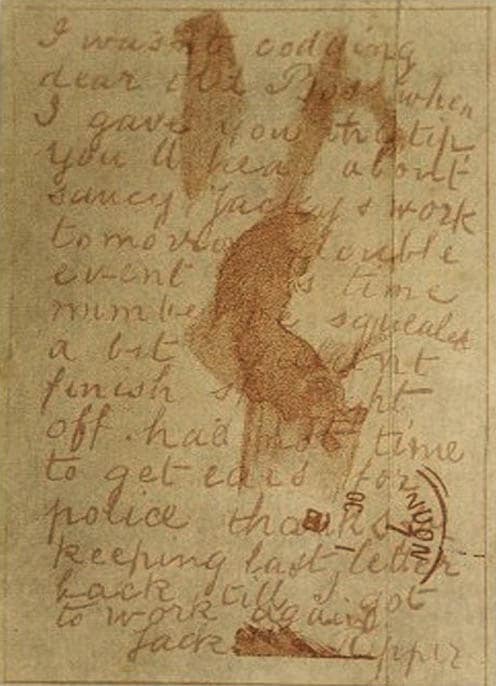 I wasnt codding
dear old Boss when
I gave you the tip
you ll hear about
saucy Jackys work
tomorrow double
event time
number squealed
a bit
finish
off. had not time
to get ears for
police thanks
keeping last letter
back till I got
to work again
Jack